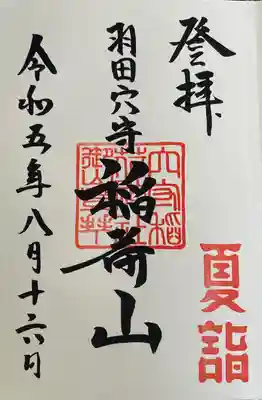 登拝
羽田穴守
稲荷山
令和五年八月十六日
夏詣